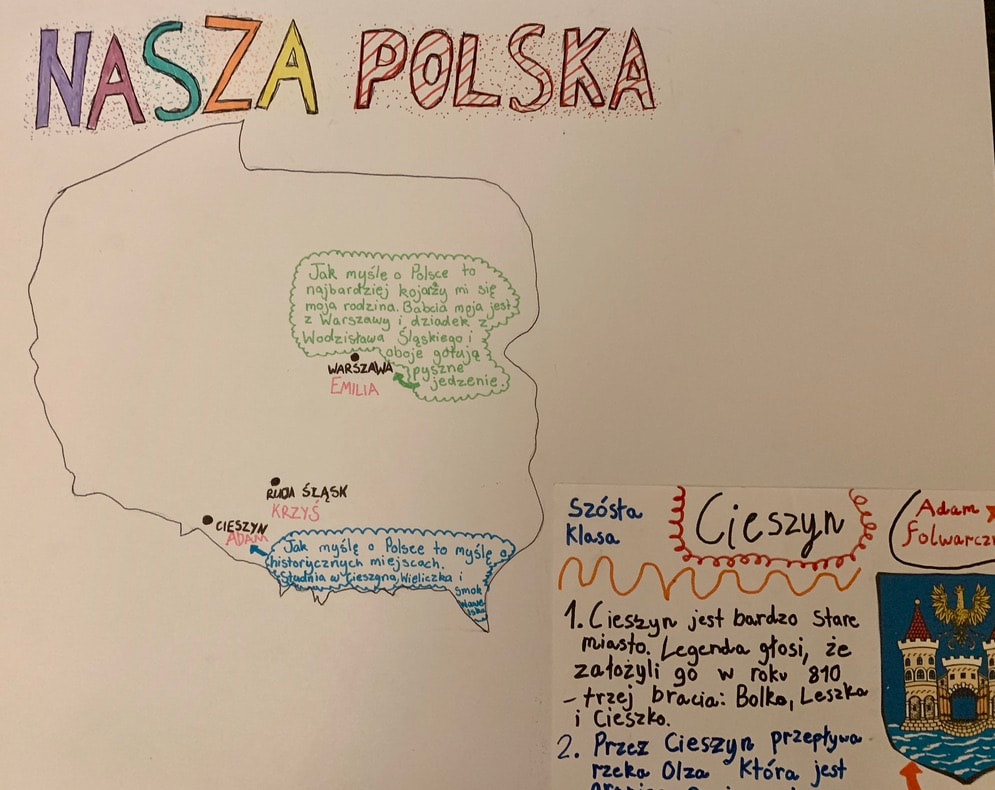 NASZA POLSKA
Jak myślę o Polsce to
najbardziej kojarzy mi się
moja rodzina. Babcia moja jest
z Warszawy i dziadek z
Wodzisława Śląskiego i
oboje gotują
pyszne
jedzenie.
WARSZAWA
EMILIA
RUDA ŚLĄSK
KRZYŚ
CIESZYN
ADAM
Jak myślę o Polsce to myślę o
historycznych miejscach.
Studnia w Cieszyna, Wieliczka i
Smok
Wawe
lski
Szósta
Klasa
Cieszyn
Adam
Folwarcz
1. Cieszyn jest bardzo stare
miasto. Legenda głosi, że
założyli go w roku 810
– trzej bracia: Bolko, Leszka
i Cieszko.
2. Przez Cieszyn przepływa
rzeka Olza Która jest